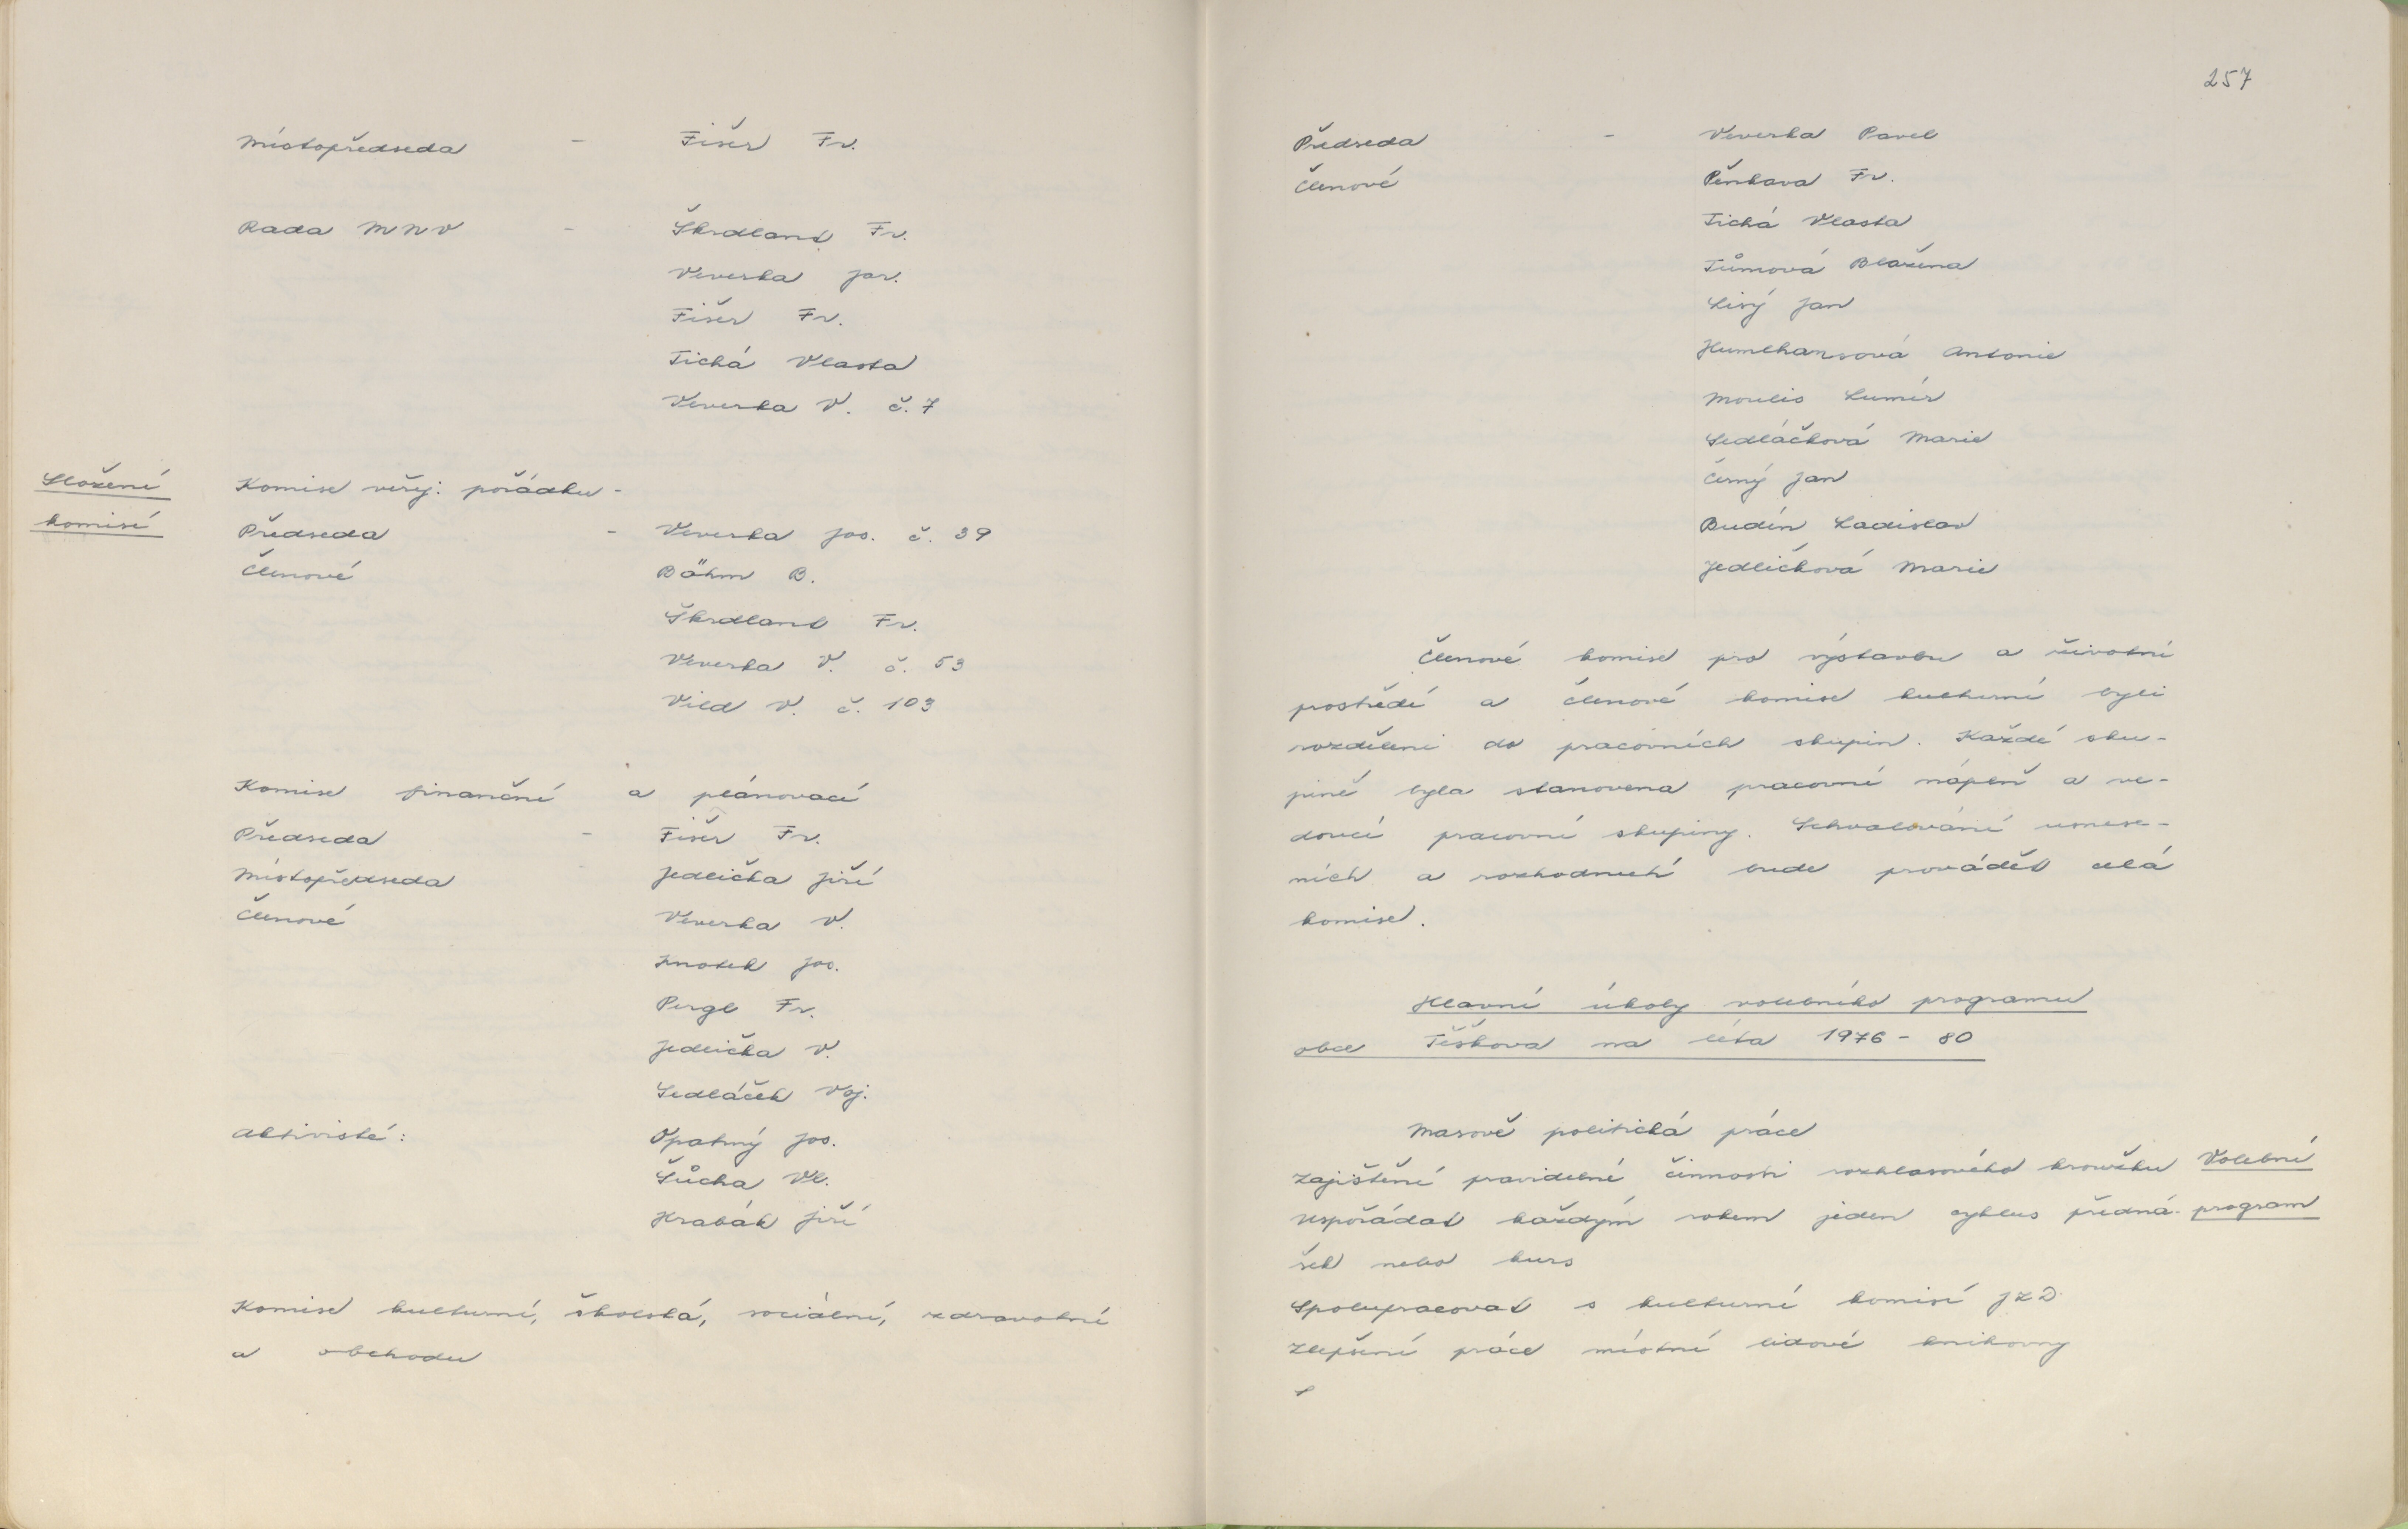 Místopředseda - Fišer Fr.
Rada MNV - Škrdlant Fr.
Veverka Jar.
Fišer Fr.
Tichá Vlasta
Veverka V. č. 7
Složení
komisí
Komise veřej. pořádku -
Předseda - Veverka Jos. č. 39
Členové Böhm B.
Škrdlant Fr.
Veverka V. č. 53
Vild V. č. 103
Komise finanční a plánovací
Předseda - Fišer Fr.
Místopředseda - Jedlička Jiří
Členové Veverka V.
Jos.
Pergl Fr.
Jedlička V.
Sedláček Voj.
Aktivisté: Opatrný Jos.
Šůcha Vl.
Hrabák Jiří
Komise kulturní, školská, sociální, zdravotní
a obchodu
257
Předseda - Veverka Pavel
Členové Pěnkava Fr.
Tichá Vlasta
Tůmová Blažena
Lisý Jan
Humlhansová Antonie
Moulis Lumír
Sedláčková Marie
Černý Jan
Budín Ladislav
Jedličková Marie
Členové komise pro výstavbu a životní
prostředí a členové komise kulturní byli
rozděleni do pracovních skupin. Každé sku-
pině byla stanovena pracovní náplň a ve-
doucí pracovní skupiny. Schvalování usnese-
ních a rozhodnutí bude provádět celá
komise.
Hlavní úkoly volebního programu
obce Těškova na léta 1976 - 80
Masově politická práce
Zajištění pravidelné činnosti rozhlasového kroužku
Volební
program
Uspořádat každým rokem jeden cyklus předná-
šek nebo kurs
Spolupracovat s kulturní komisí JZD
Zlepšení práce místní lidové knihovny